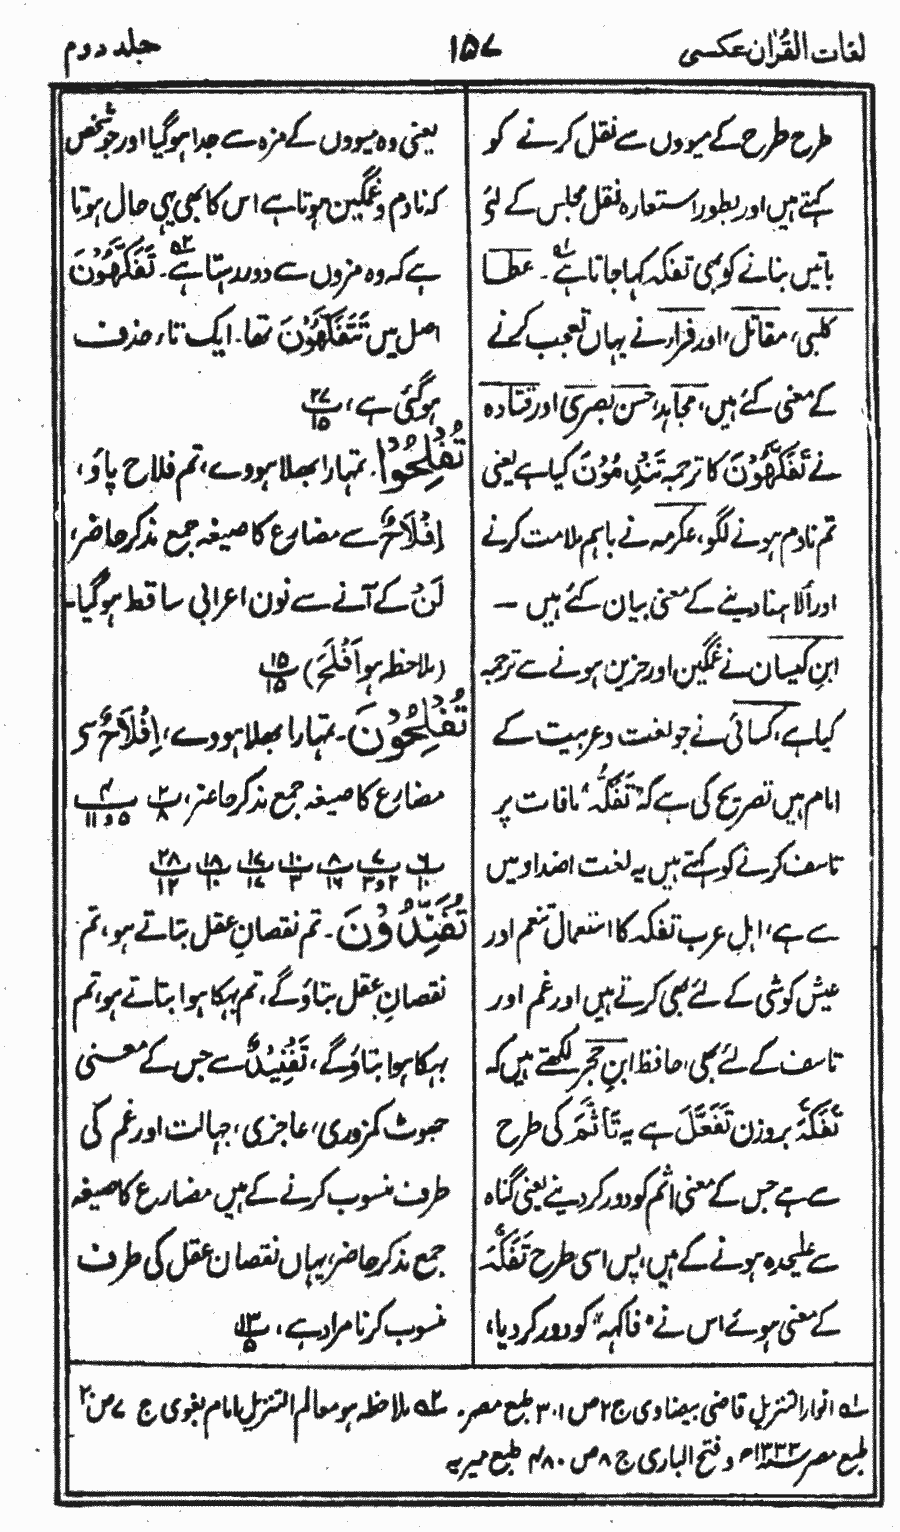 لغات القرآن عکسی ۱۵۷ جلد دوم
طرح طرح کے میووں سے نقل کرنے کو
کہتے ہیں اور بطور استعارہ نقل مجلس کے لئے
باتیں بنانے کو بھی تفکہ کہا جاتا ہے لہ۔ عطا
کلبی، مقاتل، اور فراء نے یہاں تعجب کرنے
کے معنی کئے ہیں، مجاہد، حسن بصری اور قتادہ
نے تَفَكَّهُوْنَ کا ترجمہ تَنَدِّمُوْنَ کیا ہے یعنی
تم نادم ہونے لگو، عکرمہ نے باہم ملامت کرنے
اور اُلاہنا دینے کے معنی بیان کئے ہیں —
ابنِ کیسان نے غمگین اور حزیں ہونے سے ترجمہ
کیا ہے، کسائی نے جو لغت و عربیت کے
امام ہیں تصریح کی ہے کہ "تَفَكُّہ" مافات پر
تاسف کرنے کو کہتے ہیں یہ لغت اضداد میں
سے ہے، اہل عرب تفکہ کا استعمال تنعم اور
عیش کوشی کے لئے بھی کرتے ہیں اور غم اور
تاسف کے لئے بھی، حافظ ابنِ حجر لکھتے ہیں کہ
تَفَكَّهَ بروزن تَفَعَّلَ ہے یہ تَأَثَّمَ کی طرح
سے ہے جس کے معنی اثم کو دور کر دینے یعنی گناہ
سے علیحدہ ہونے کے ہیں، پس اسی طرح تَفَكَّهَ
کے معنی ہوئے اس نے "فاکہہ" کو دور کر دیا،
یعنی وہ میووں کے مزہ سے جدا ہو گیا اور جو شخص
کہ نادم و غمگین ہوتا ہے اس کا بھی یہی حال ہوتا
ہے کہ وہ مزوں سے دور رہتا ہے ۲ہ۔ تَفَكَّهُوْنَ
اصل میں تَتَفَكَّهُوْنَ تھا۔ ایک تاء حذف
ہو گئی ہے، ۲۷/۱۵
تُفْلِحُوْا۔ تمہارا بھلا ہووے، تم فلاح پاؤ،
اِفْلَاحٌ سے مضارع کا صیغہ جمع مذکر حاضر،
لَنْ کے آنے سے نون اعرابی ساقط ہو گیا۔
(ملاحظہ ہو اَفْلَحَ) ۱۵/۱۵
تُفْلِحُوْنَ۔ تمہارا بھلا ہووے، اِفْلَاحٌ سے
مضارع کا صیغہ جمع مذکر حاضر، ۲/۸ ۴/۵ و ۱۱
۶/۱۰ ۷/۲ و ۳ ۸/۱۶ ۱۰/۳ ۱۷/۱۷ ۱۸/۱۰ ۲۸/۱۲
تُفَنِّدُوْنَ۔ تم نقصانِ عقل بتاتے ہو، تم
نقصانِ عقل بتاؤ گے، تم بہکا ہوا بتاتے ہو، تم
بہکا ہوا بتاؤ گے، تَفْنِيْدٌ سے جس کے معنی
جھوٹ کمزوری، عاجزی، جہالت اور غم کی
طرف منسوب کرنے کے ہیں مضارع کا صیغہ
جمع مذکر حاضر، یہاں نقصان عقل کی طرف
منسوب کرنا مراد ہے، ۱۳/۵
لہ انوار التنزیل قاضی بیضاوی ج۲ ص ۳۰۱ طبع مصر۔ ۲ہ ملاحظہ ہو معالم التنزیل امام بغوی ج ۷ ص۲۰
طبع مصر ۱۳۳۲ھ و فتح الباری ج ۸ ص ۴۸۰ طبع میریہ